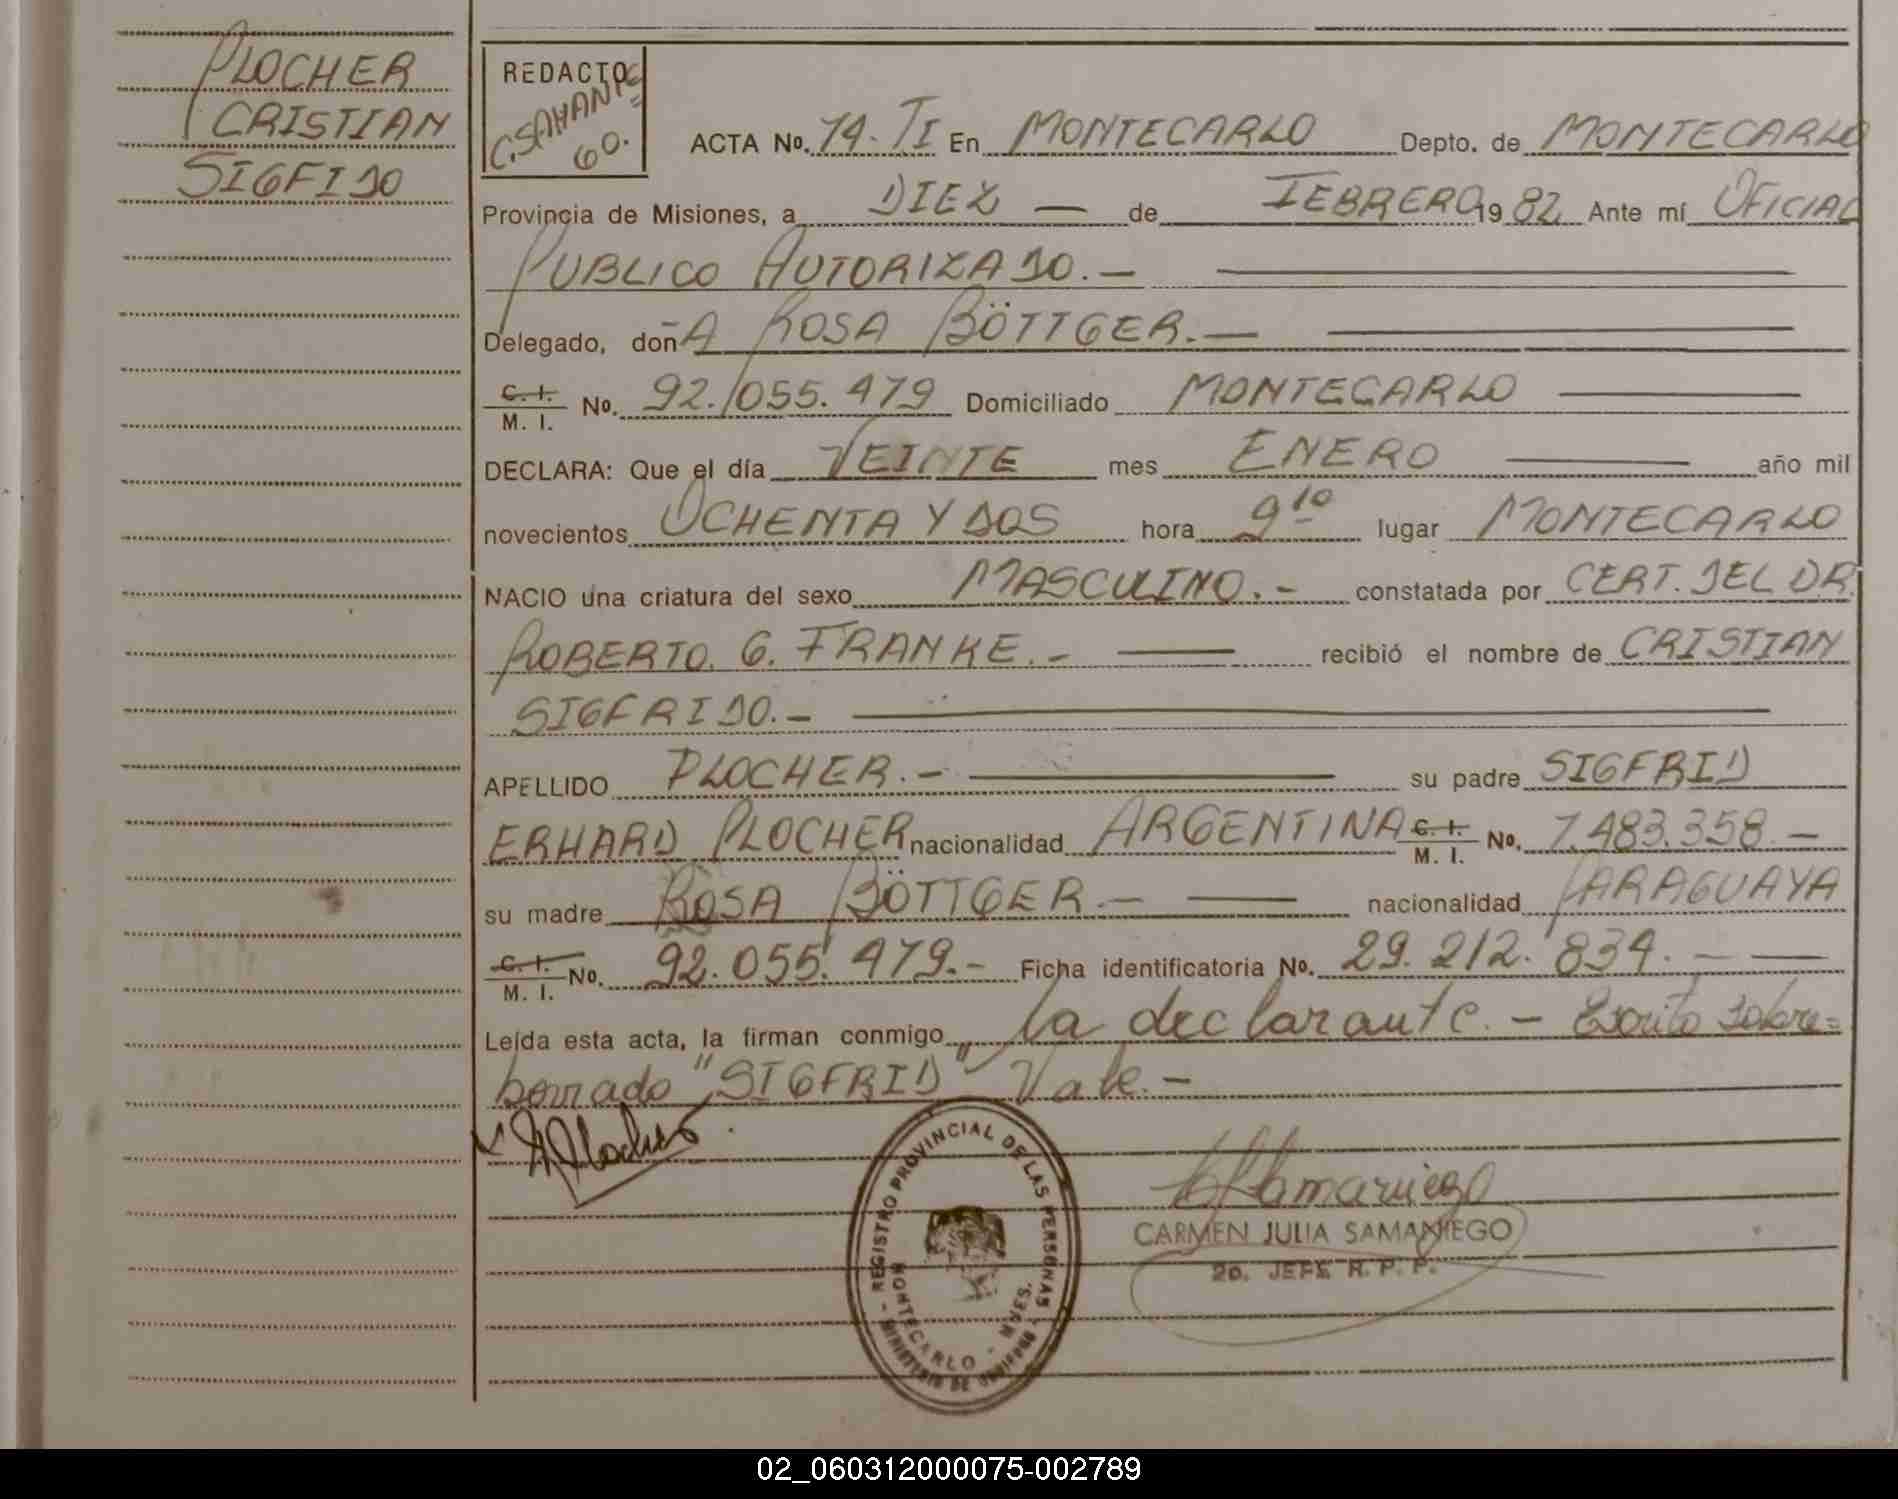 PLOCHER
CRISTIAN
SIGFIDO
REDACTO
60.
ACTA No. 74-TI En MONTECARLO Depto. de MONTECARLO
Provincia de Misiones, a DIEZ — de FEBRERO 1982 Ante mí OFICIAL
PUBLICO AUTORIZADO.—
Delegado, doñA ROSA BÖTTGER.—
C. I. / M. I. No. 92.055.479 Domiciliado MONTECARLO
DECLARA: Que el día VEINTE mes ENERO año mil
novecientos OCHENTA Y DOS hora 9 10 lugar MONTECARLO
NACIO una criatura del sexo MASCULINO.- constatada por CERT. DEL DR.
ROBERTO. G. FRANKE.- recibió el nombre de CRISTIAN
SIGFRIDO.-
APELLIDO PLOCHER.- su padre SIGFRID
ERHARD PLOCHER nacionalidad ARGENTINA C. I. / M. I. No. 7.483.358.-
su madre ROSA BÖTTGER.- nacionalidad PARAGUAYA
C. I. / M. I. No. 92.055.479.- Ficha identificatoria No. 29.212.834.-
Leída esta acta, la firman conmigo la declarante.- Escrito sobre=
borrado "SIGFRID" Vale.-
REGISTRO PROVINCIAL DE LAS PERSONAS - MINISTERIO DE GOBIERNO
MONTECARLO - MNES.
CARMEN JULIA SAMANIEGO
2o. JEFE R. P. P.
02_060312000075-002789